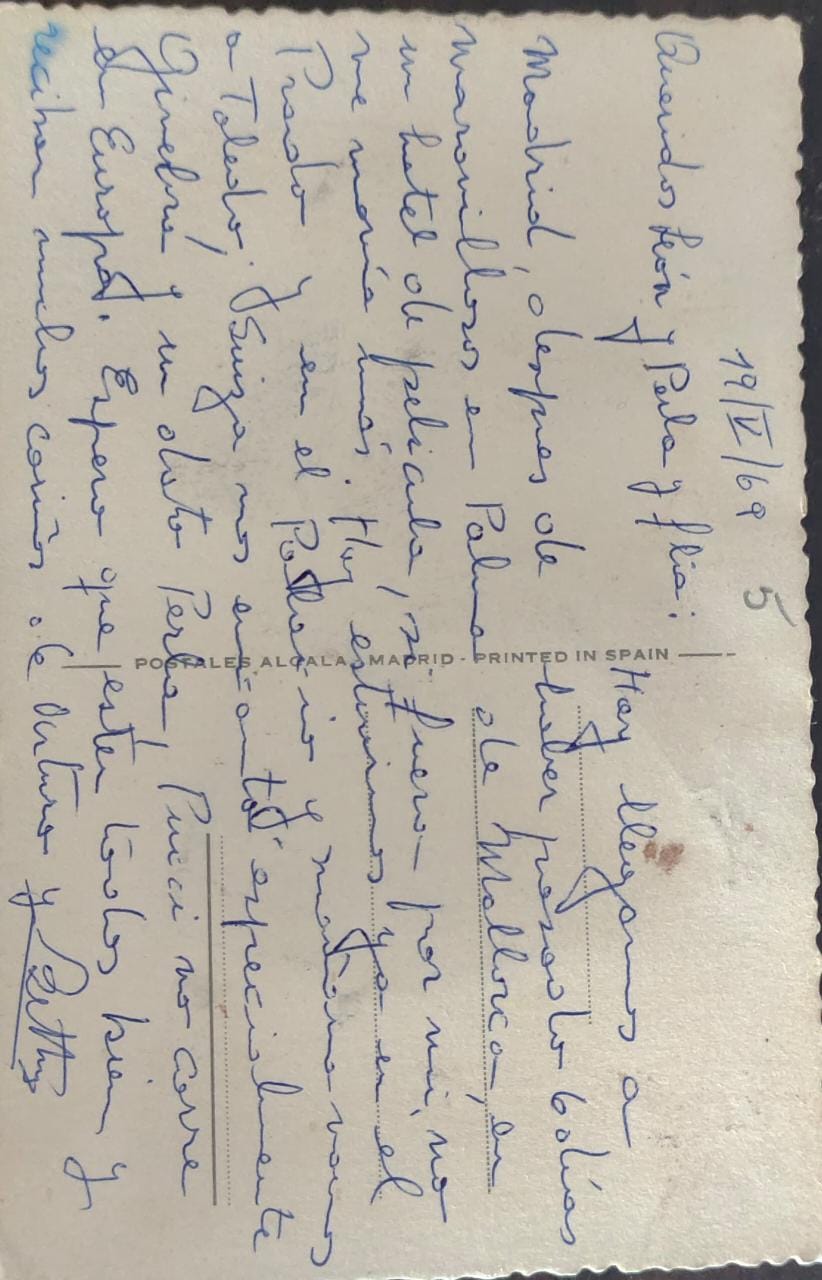 19/V/69
5
Queridos León y Perla y flia:
Hoy llegamos a
Madrid, despues de haber pasado 6 días
maravillosos en Palma de Mallorca, en
un hotel de pelicula, si fuera por mi, no
me movía más. Hoy estuvimos ya en el
Prado y en el Palacio y mañana vamos
a Toledo. Suiza nos encantó especialmente
Ginebra, y un dato Perla, Pucci no corre
en Europa. Espero que estén todos bien y
reciban muchos cariños de Arturo y Betty
POSTALES ALCALA - MADRID - PRINTED IN SPAIN